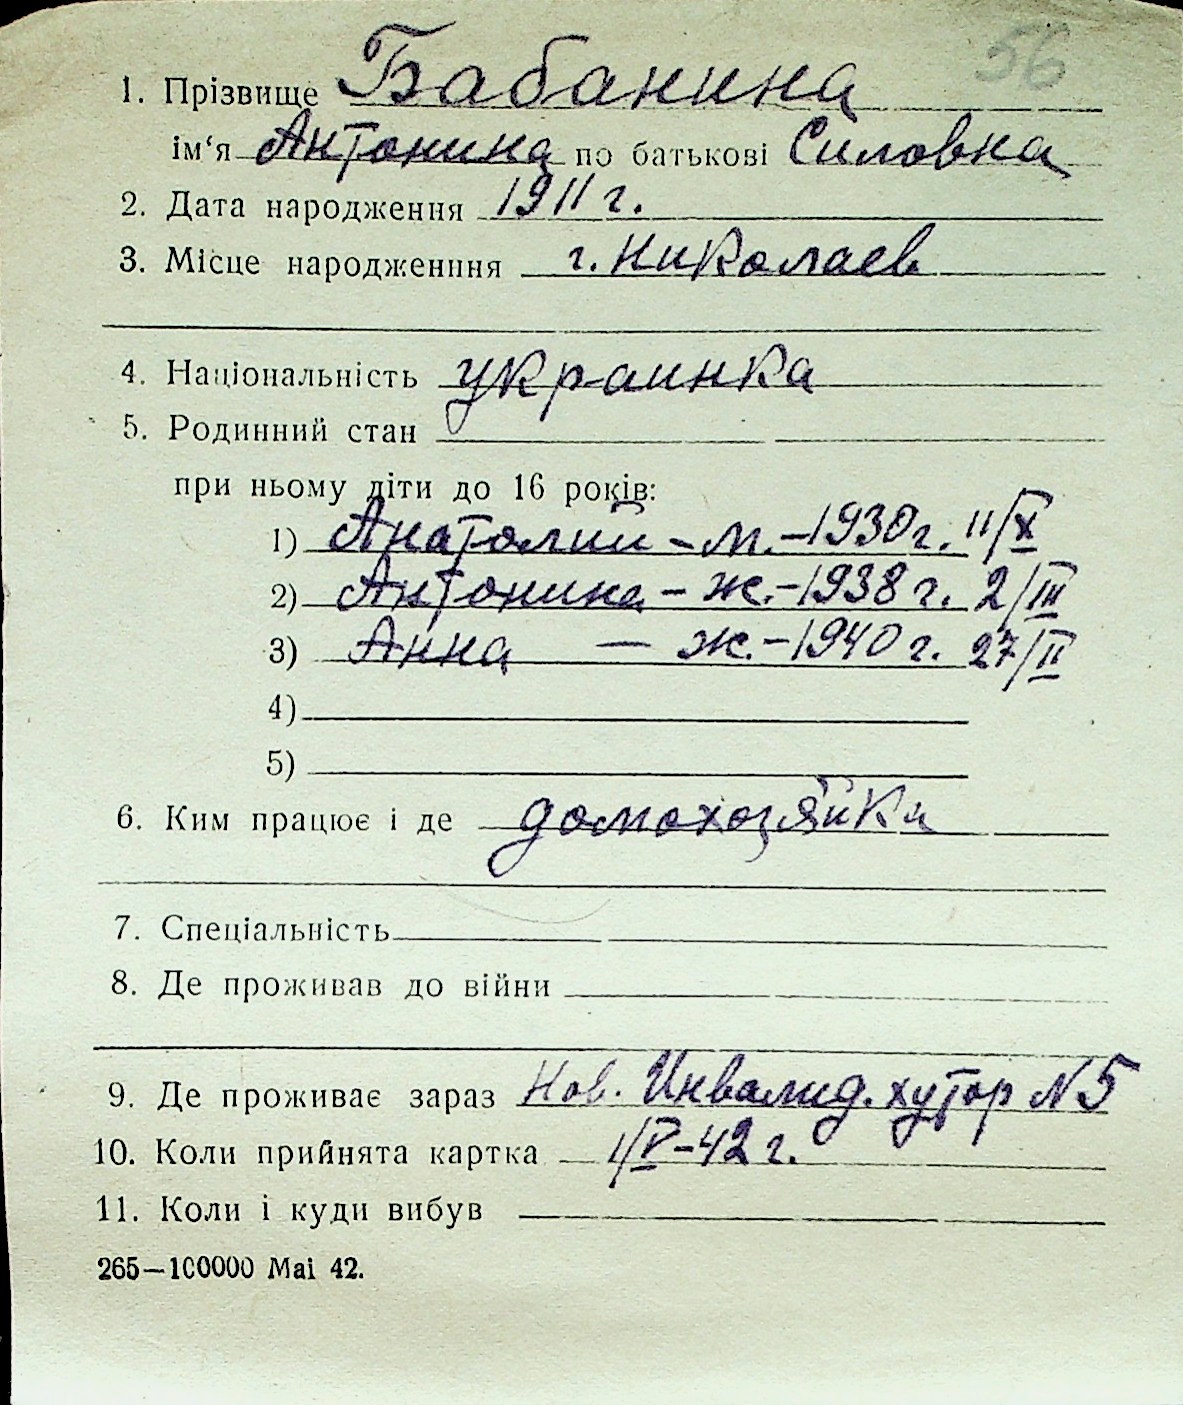 56
1. Прізвище Бабанина
ім‘я Антонина по батькові Силовна
2. Дата народження 1911 г.
3. Місце народженння г. Николаев
4. Національність украинка
5. Родинний стан
при ньому діти до 16 років:
1) Анатолий – м. – 1930 г. 11/X
2) Антонина – ж. – 1938 г. 2/III
3) Анна — ж. – 1940 г. 27/II
4)
5)
6. Ким працює і де домохозяйка
7. Спеціальність
8. Де проживав до війни
9. Де проживає зараз Нов. Инвалид. хутор N 5
10. Коли прийнята картка 1/V – 42 г.
11. Коли і куди вибув
265—100000 Mai 42.